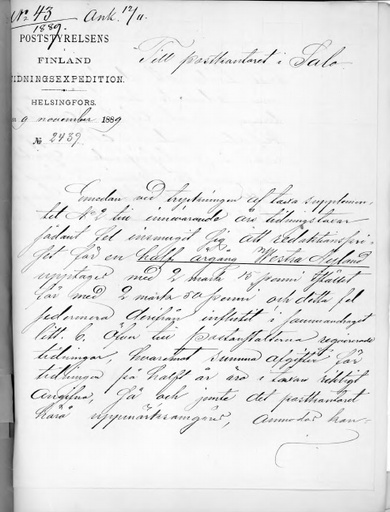 No 43
1889.
Ank. 12/11.
POSTSTYRELSENS
I
FINLAND
TIDNINGSEXPEDITION.
HELSINGFORS.
9 november 1889
№ 2437
Till postkontoret i Salo
Emedan vid tryckningen af taxa supplemen-
tet No 2 till innevarande års tidningstaxa
sådant fel insmugit sig att redaktionspri-
set för en half årgång Westra Nyland
upptages med 2 mark 75 penni i stället
för med 2 mark 50 penni och detta fel
sedermera derifrån influtit i sammandraget
litt. C. öfver till postanstalterna reqvirerade
tidningar, hvaremot summa afgifter för
tidningen på halft år äro i taxan riktigt
angifna, så och jemte det postkontoret
härå uppmärksamgöres, anmodas kon-